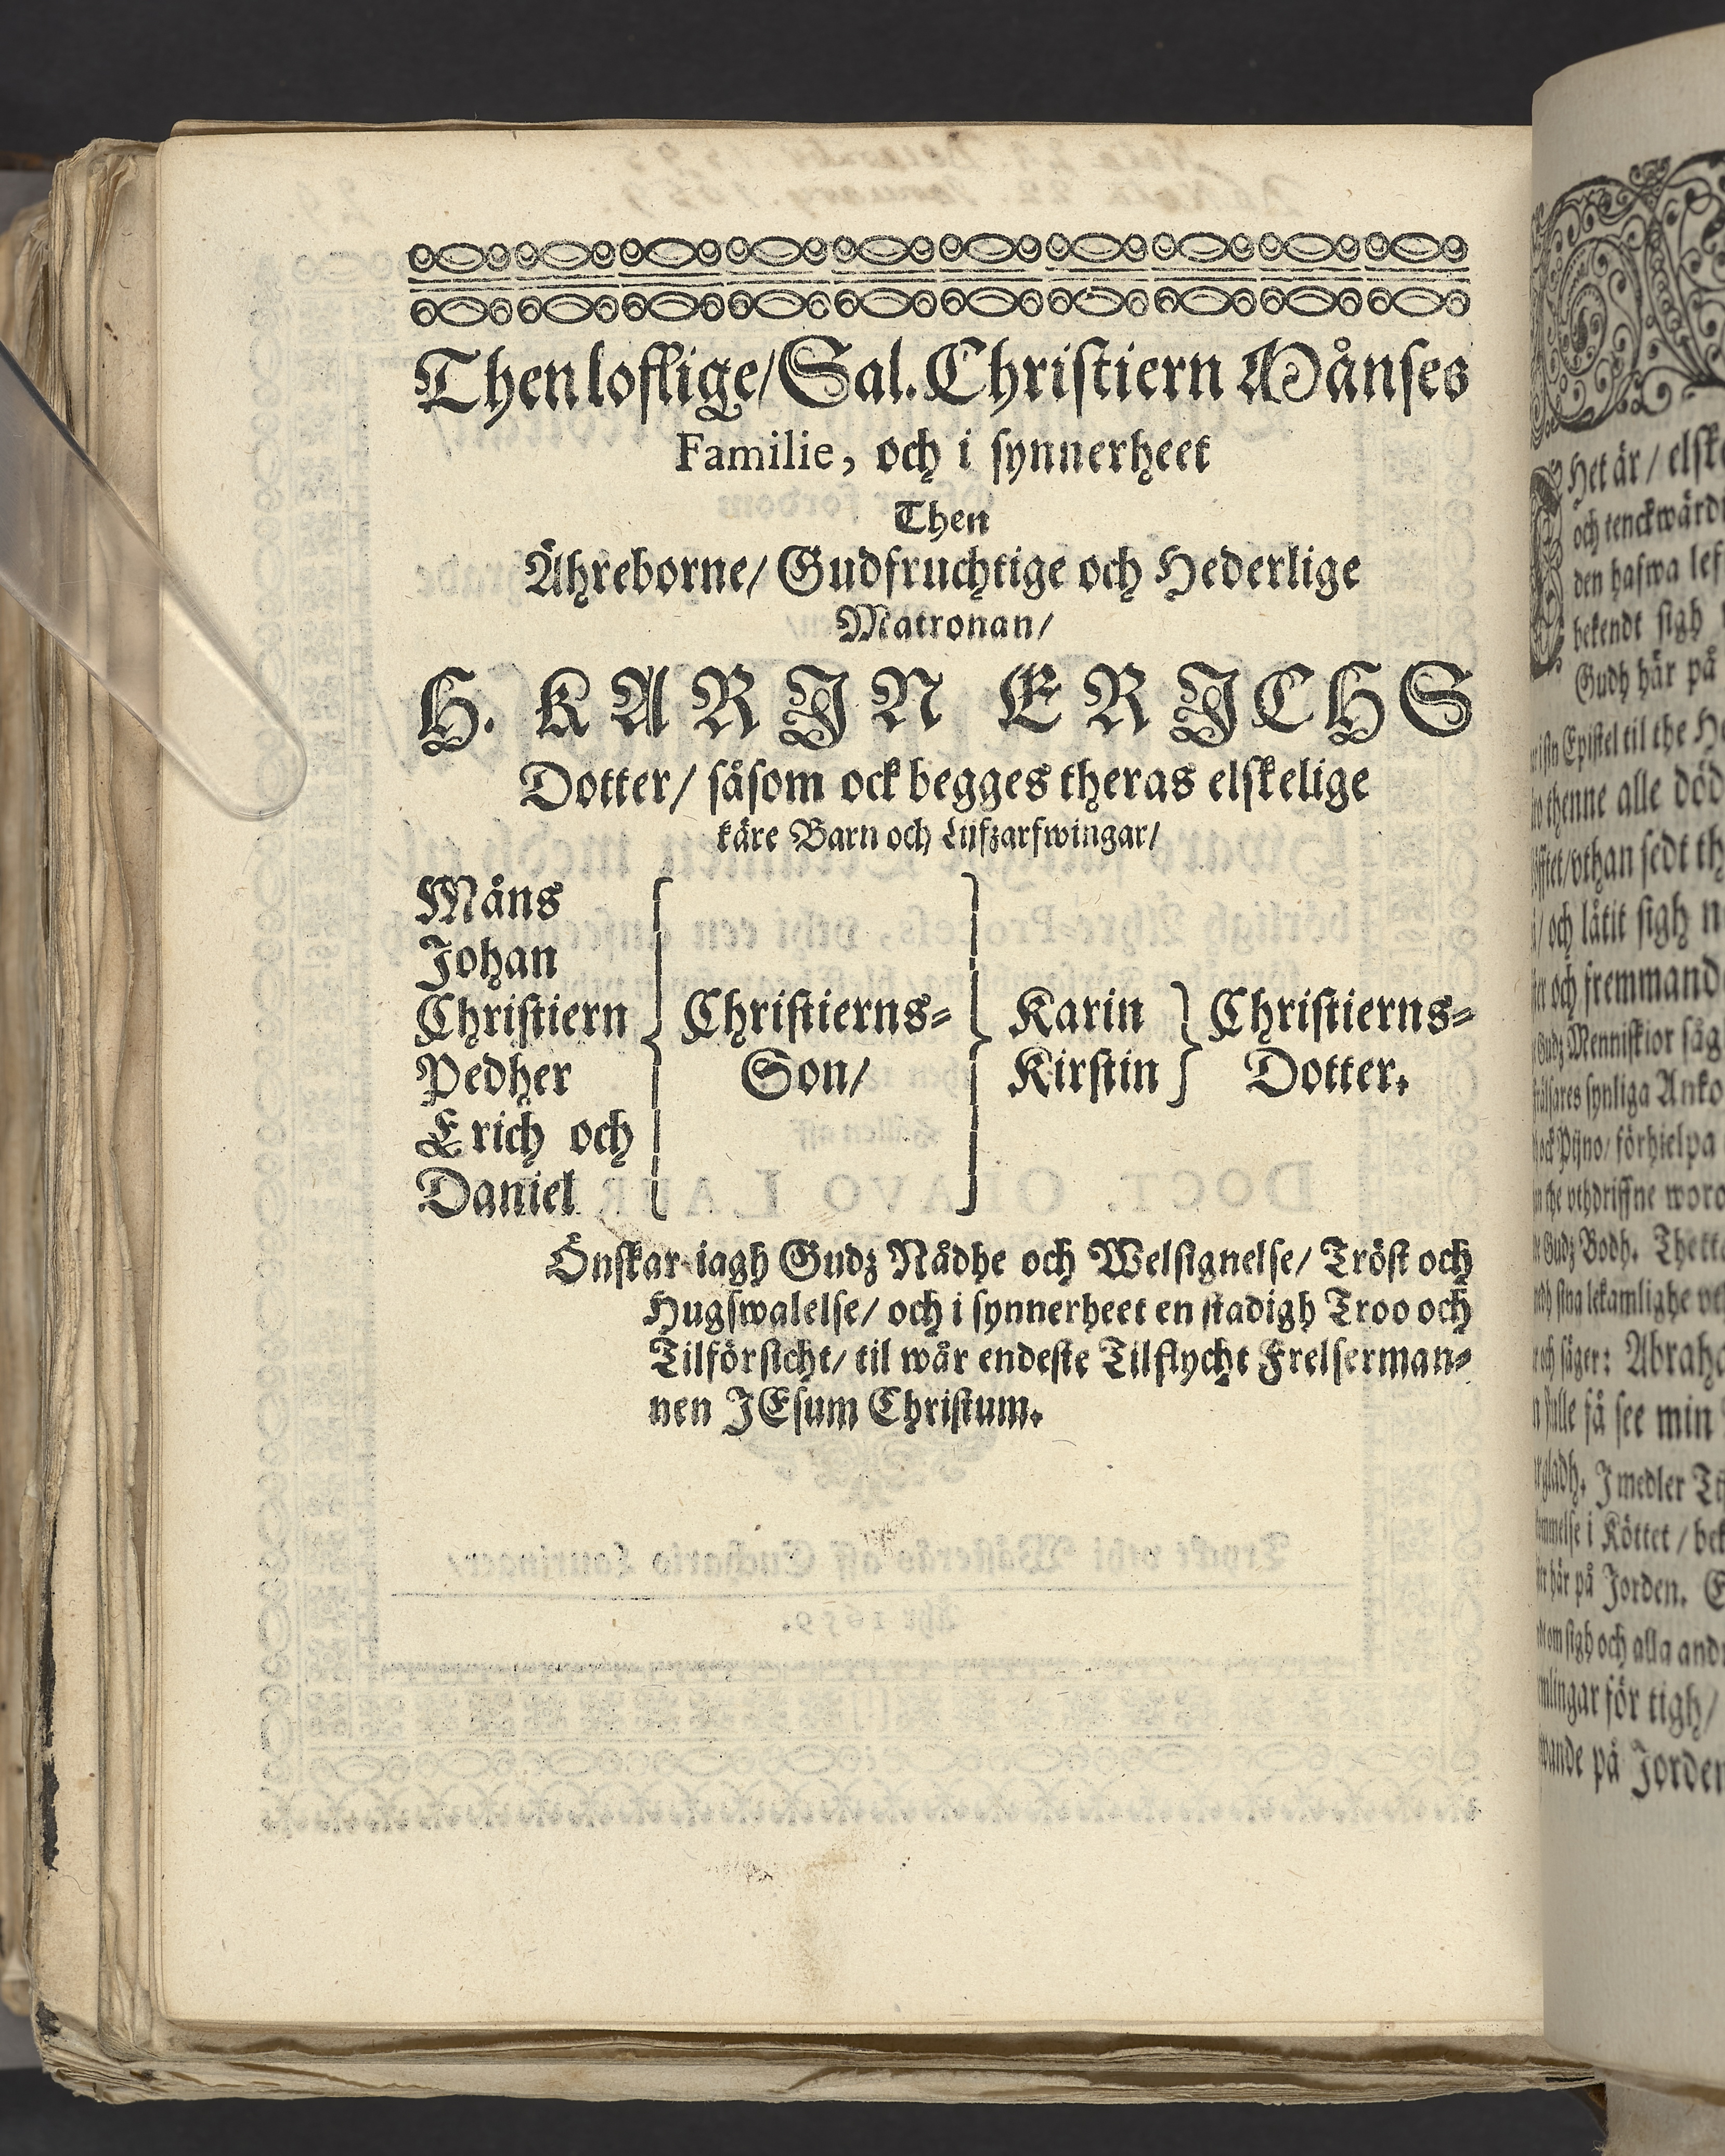 Then loflige/ Sal. Christiern Månses
Familie, och i synnerheet
Then
Ähreborne/ Gudfruchtige och Hederlige
Matronan/
H. KARJN ERJCHS
Dotter/ såsom ock begges theras elskelige
käre Barn och Lijfzarfwingar/
Måns
Johan
Christiern
Pedher
Erich och
Daniel
Christierns-
Son/
Karin
Kirstin
Christierns-
Dotter.
Önskar iagh Gudz Nådhe och Welsignelse/ Tröst och
Hugswalelse/ och i synnerheet en stadigh Troo och
Tilförsicht/ til wår endeste Tilflycht Frelserman-
nen JEsum Christum.
Het är/
och tenckwärd
den hafwa lef
bekendt sigh
Gudh här på
Epistel til the
thenne alle död
vthan sedt th
och låtit sigh n
och fremmand
Menniskior såg
synliga Anko
förhielpa
the vthdriffne woro
Gudz Bodh. Thetta
sina lekamlighe
och säger: Abraha
få see min
gladh. J medler
i Köttet / bek
här på Jorden.
om sigh och alla and
för tigh/
på Jorden